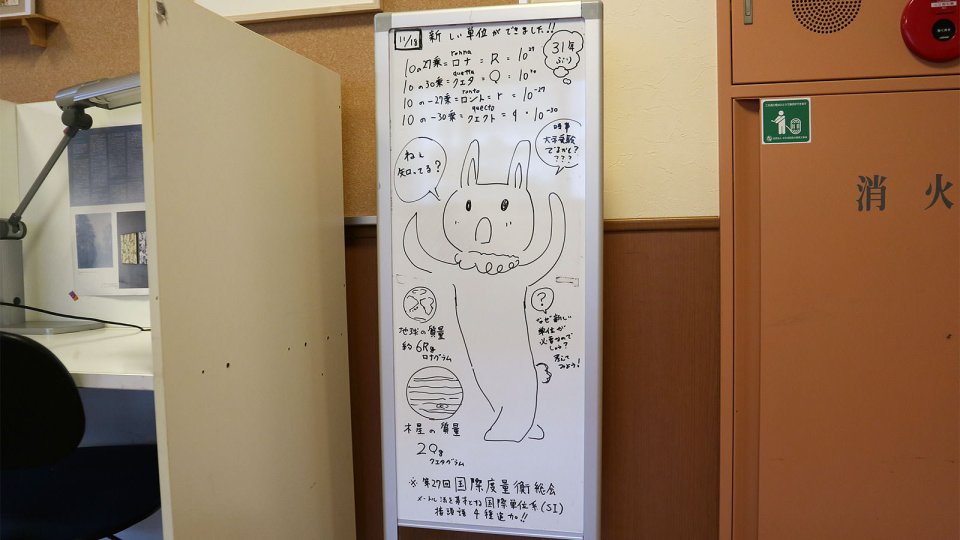 11/18
新しい単位ができました!!
31年
ぶり
ronna
10の27乗=ロナ=R=10²⁷
quetta
10の30乗=クエタ=Q=10³⁰
ronto
10の-27乗=ロント=r=10⁻²⁷
quecto
10の-30乗=クエクト=q・10⁻³⁰
ねぇ
知ってる?
時事
大学受験
でるかも?
???
地球の質量
約6Rg
ロナグラム
?
なぜ新しい
単位が
必要なので
しょう?
考えて
みよう!
木星の質量
2Qg
クエタグラム
※第27回国際度量衡総会
メートル法を基本とする国際単位系(SI)
接頭語4種追加!!
消火